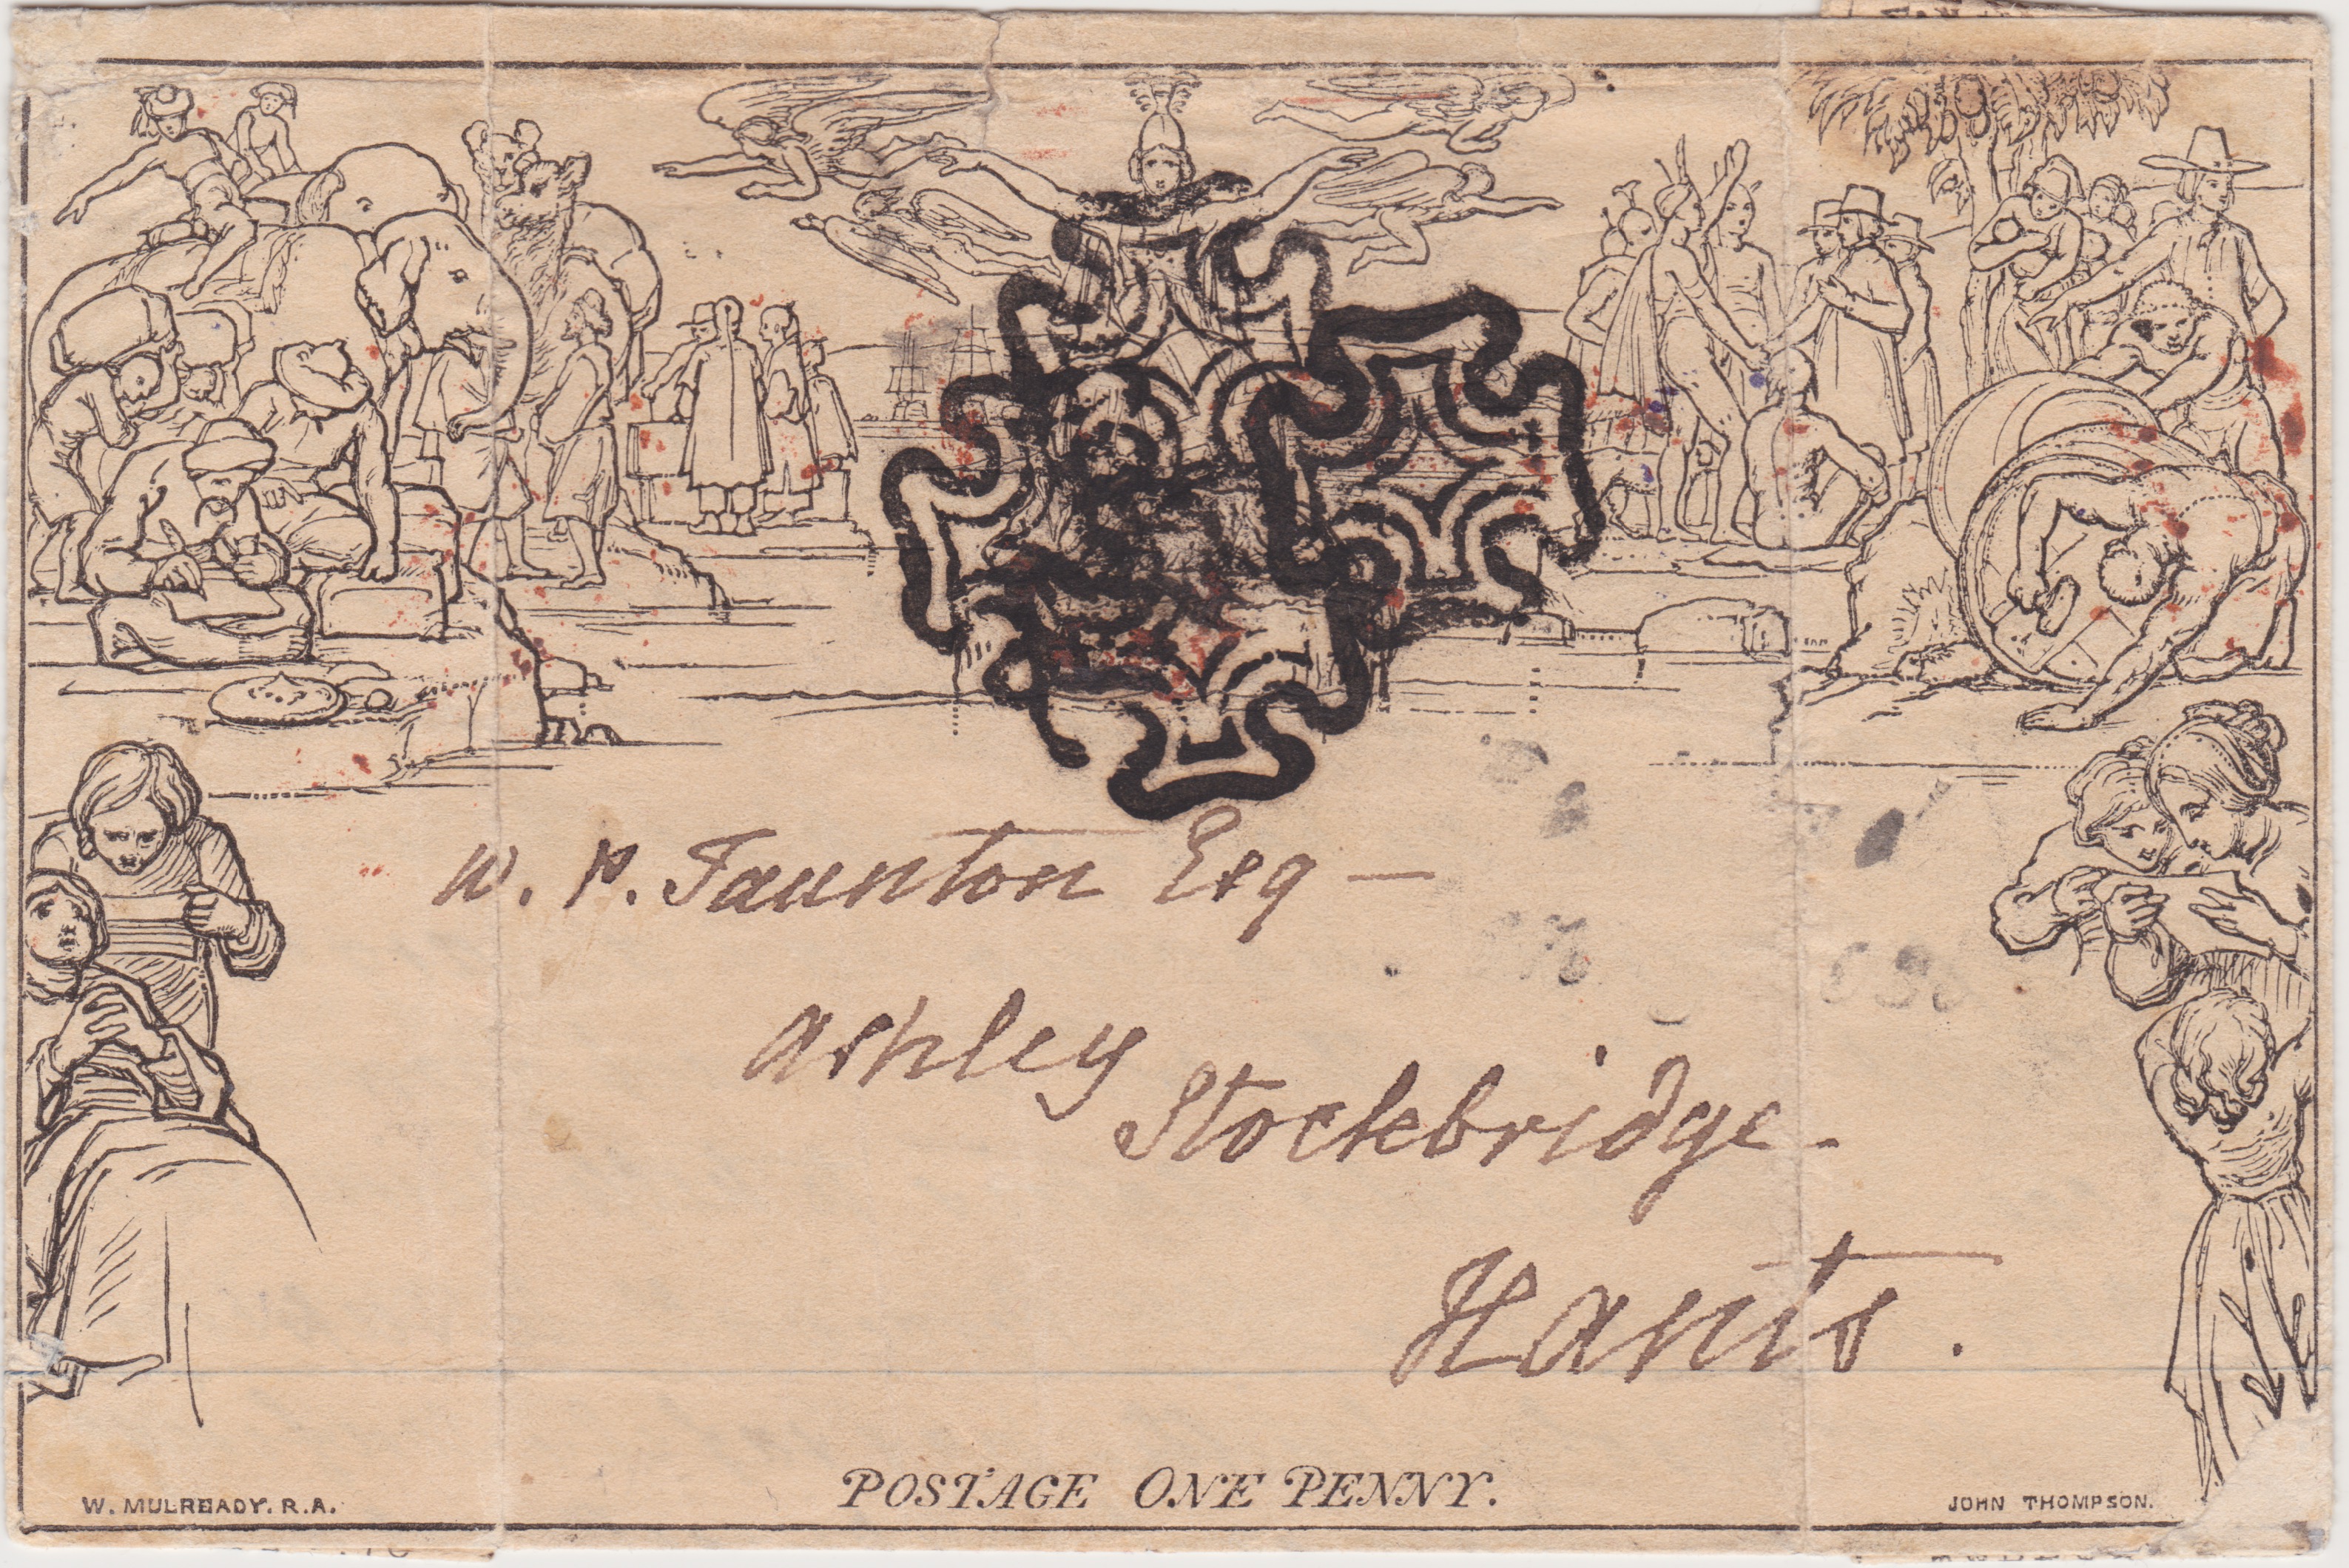 W. P. Taunton Esq —
Ashley
Stockbridge -
Hants.
POSTAGE ONE PENNY.
W. MULREADY. R.A.
JOHN THOMPSON.